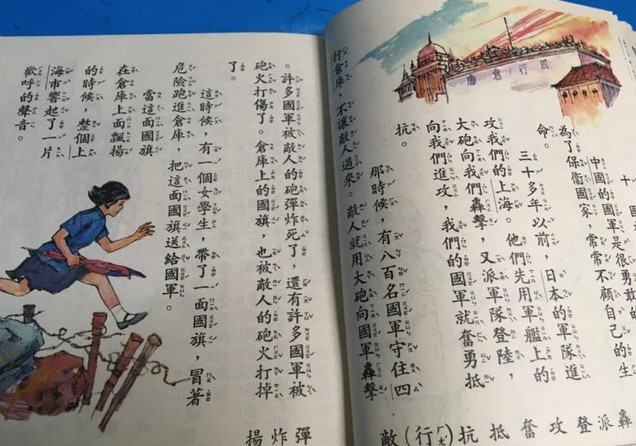 四行倉庫
十一
中國的國軍是很勇敢的
為了保衛國家，常常不顧自己的生
命。
三十多年以前，日本的軍隊進
攻我們的上海。他們先用軍艦上的
大砲向我們轟擊，又派軍隊登陸，
向我們進攻，我們的國軍就奮勇抵
抗。
那時候，有八百名國軍守住四
行倉庫，不讓敵人過來。敵人就用大砲向國軍轟擊
轟派登攻奮抵抗(行)敵
。許多國軍被敵人的砲彈炸死了，還有許多國軍被
砲火打傷了。倉庫上的國旗，也被敵人的砲火打掉
了。
這時候，有一個女學生，帶了一面國旗，冒著
危險跑進倉庫，把這面國旗送給國軍。
當這面國旗
在倉庫上面飄揚
的時候，整個上
海市響起了一片
歡呼的聲音。
彈炸揚